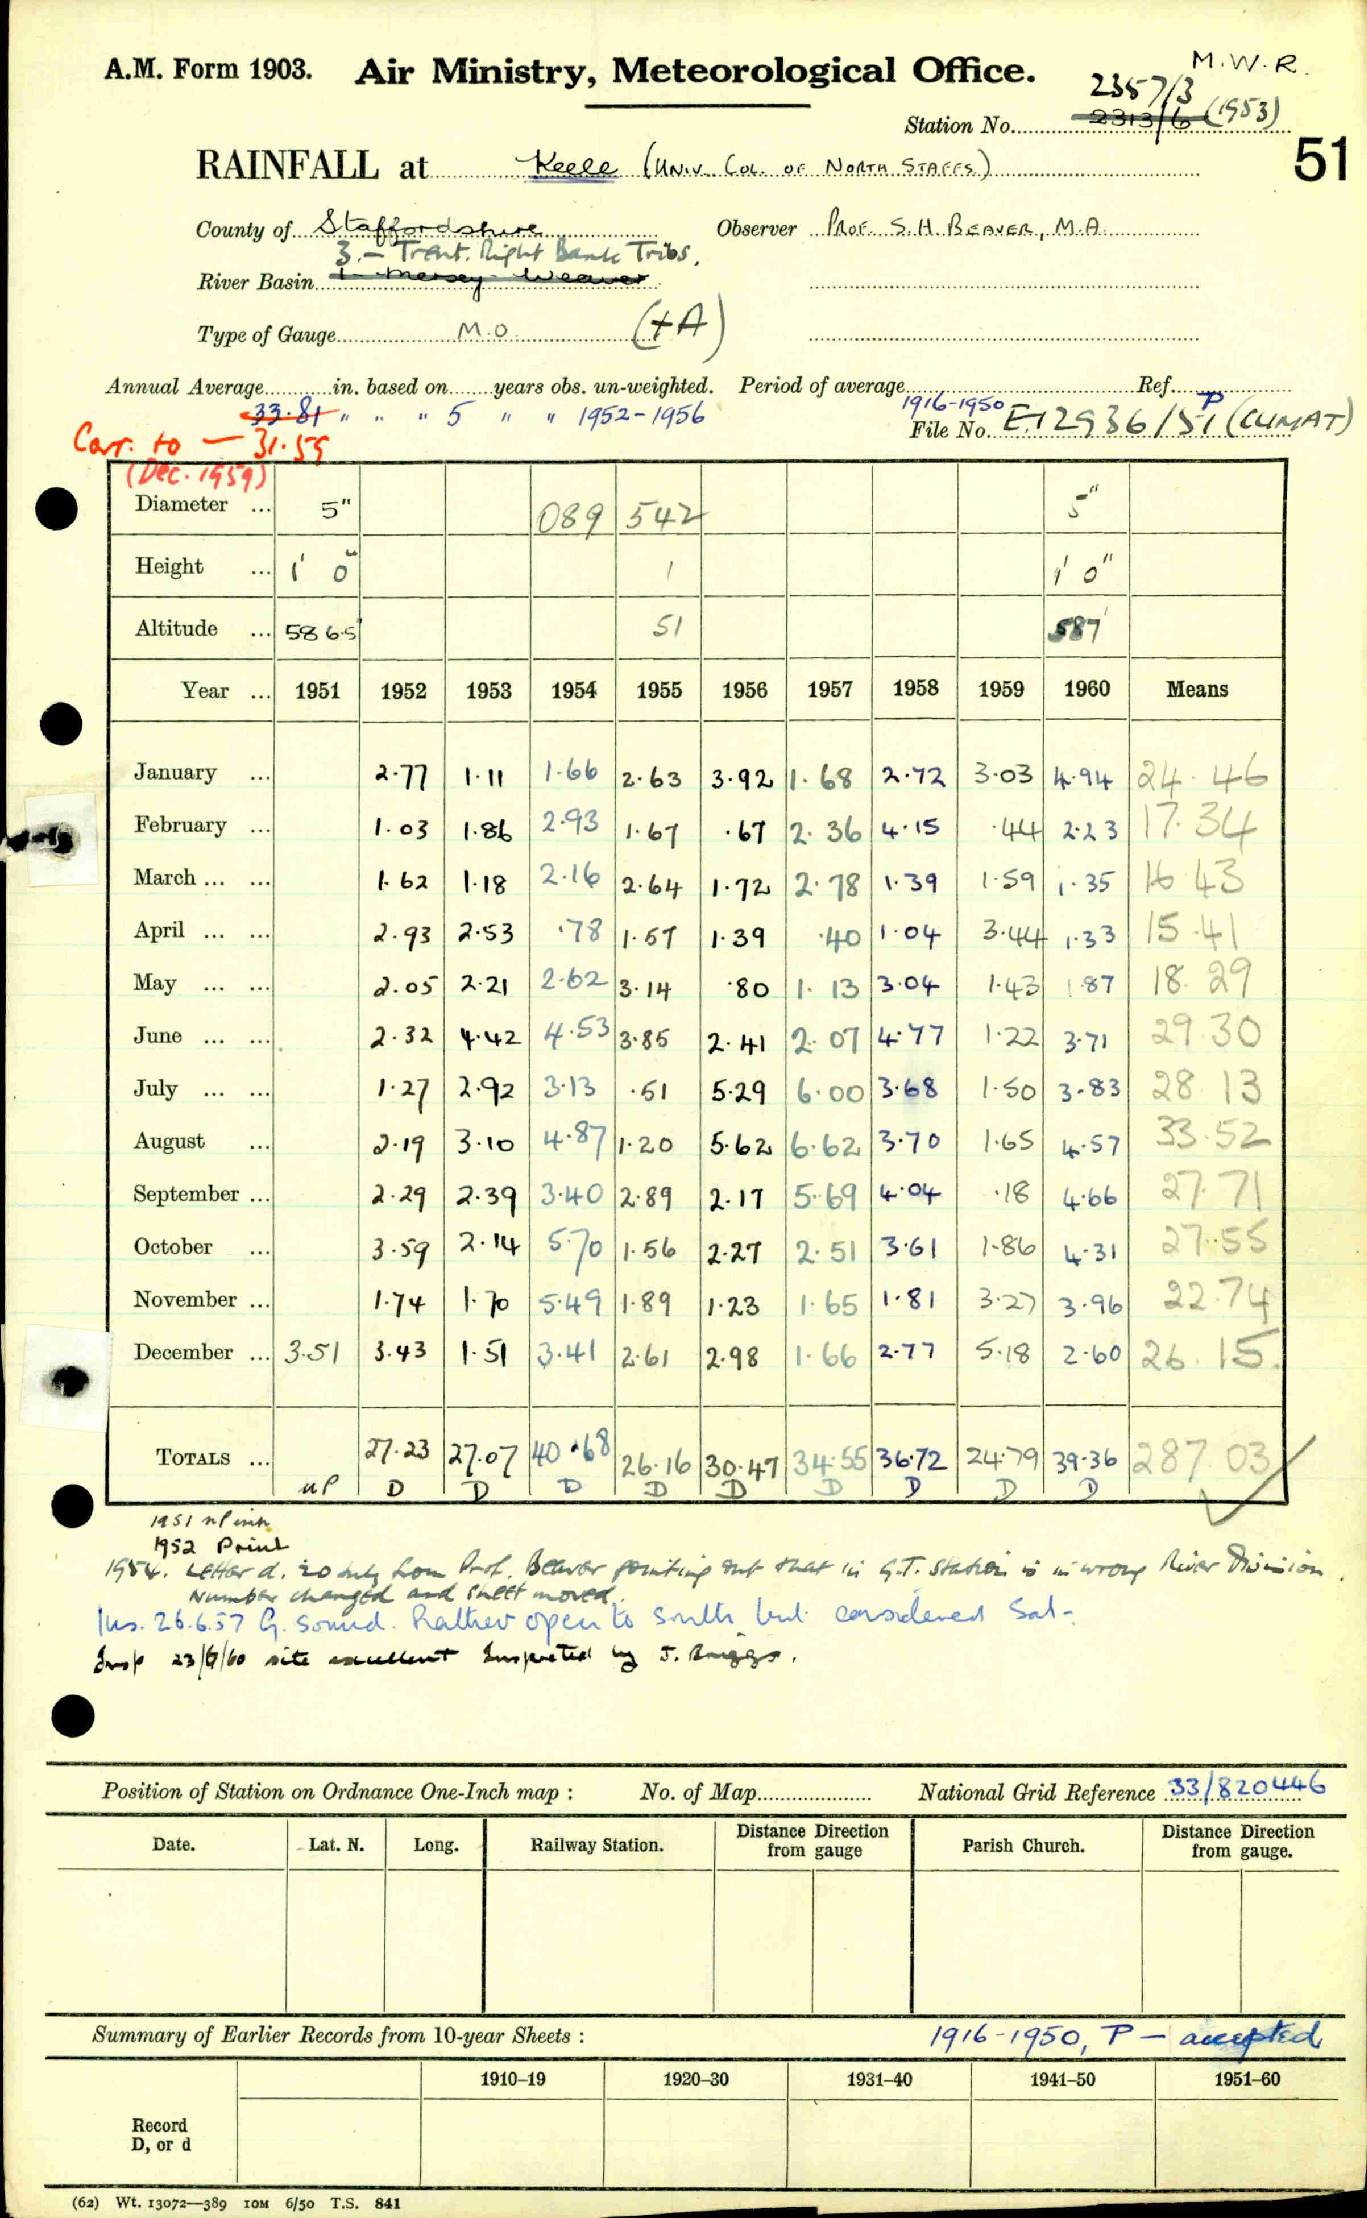 M.W.R.
A.M. Form 1903. Air Ministry, Meteorological Office.
2357/3
Station No. 2313/6 (1953)
51
RAINFALL at Keele (Univ. Col. of North Staffs)
County of Staffordshire Observer Prof. S.H. Beaver, M.A.
3.- Trent. Right Bank Tribs.
River Basin 1- Mersey - Weaver
Type of Gauge M.O. (+A)
Annual Average in. based on years obs. un-weighted. Period of average Ref.
33.81 " " " 5 " " 1952-1956 1916-1950 P
File No. E12936/51 (CLIMAT)
Corr. to — 31.59
(Dec. 1959)
Diameter ... 5" 089 542 5"
Height ... 1' 0" 1 1' 0"
Altitude ... 586.5' 51 587'
Year ... 1951 1952 1953 1954 1955 1956 1957 1958 1959 1960 Means
January ... 2.77 1.11 1.66 2.63 3.92 1.68 2.72 3.03 4.94 24.46
February ... 1.03 1.86 2.93 1.67 .67 2.36 4.15 .44 2.23 17.34
March ... ... 1.62 1.18 2.16 2.64 1.72 2.78 1.39 1.59 1.35 16.43
April ... ... 2.93 2.53 .78 1.57 1.39 .40 1.04 3.44 1.33 15.41
May ... ... 2.05 2.21 2.62 3.14 .80 1.13 3.04 1.43 1.87 18.29
June ... ... 2.32 4.42 4.53 3.85 2.41 2.07 4.77 1.22 3.71 29.30
July ... ... 1.27 2.92 3.13 .51 5.29 6.00 3.68 1.50 3.83 28.13
August ... 2.19 3.10 4.87 1.20 5.62 6.62 3.70 1.65 4.57 33.52
September ... 2.29 2.39 3.40 2.89 2.17 5.69 4.04 .18 4.66 27.71
October ... 3.59 2.14 5.70 1.56 2.27 2.51 3.61 1.86 4.31 27.55
November ... 1.74 1.70 5.49 1.89 1.23 1.65 1.81 3.27 3.96 22.74
December ... 3.51 3.43 1.51 3.41 2.61 2.98 1.66 2.77 5.18 2.60 26.15
Totals ... 27.23 27.07 40.68 26.16 30.47 34.55 36.72 24.79 39.36 287.03
nP D D D D D D D D D
1951 nP
1952 Print
1954. Letter d. 20 July from Prof. Beaver pointing out that in G.T. station is in wrong River Division.
Number changed and sheet moved.
Ins. 26.6.57 G. sound. Rather open to south but considered Sat-
Insp 23/9/60 site excellent Inspected by J. Briggs.
Position of Station on Ordnance One-Inch map : No. of Map National Grid Reference 33/820446
Date. Lat. N. Long. Railway Station. Distance Direction from gauge Parish Church. Distance Direction from gauge.
Summary of Earlier Records from 10-year Sheets : 1916-1950, P — accepted
1910–19 1920–30 1931–40 1941–50 1951–60
Record
D, or d
(62) Wt. 13072—389 10M 6/50 T.S. 841